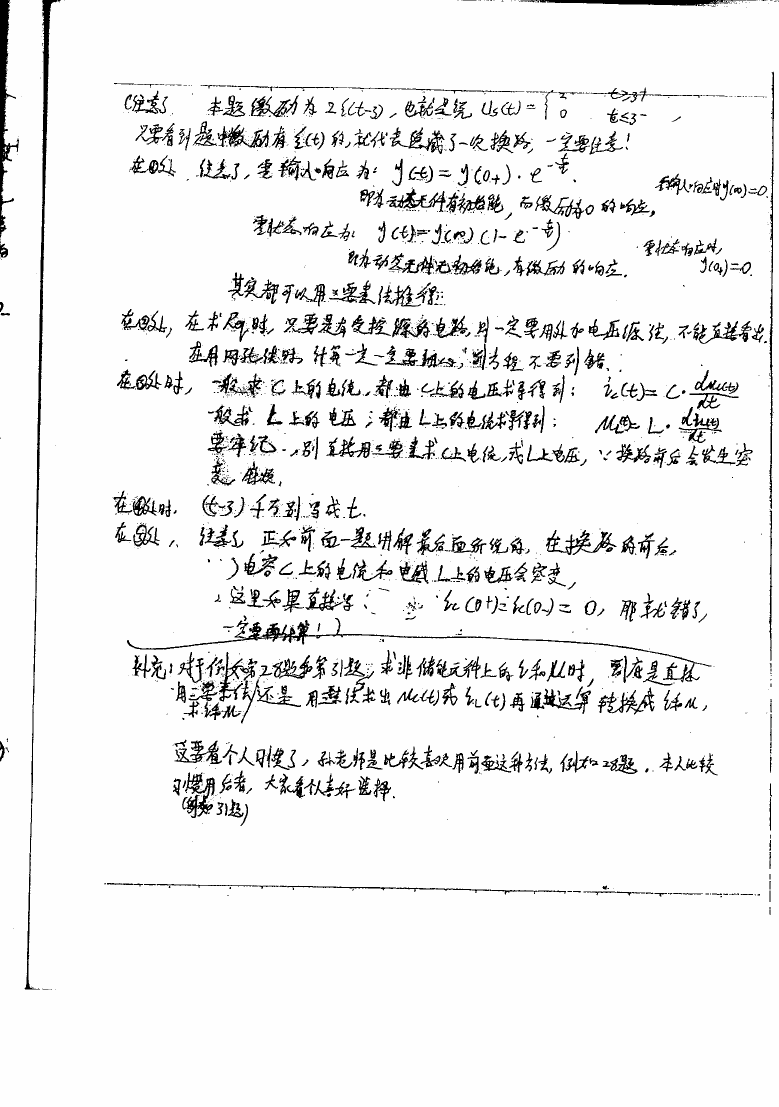 (注意了 本题激励为 2ε(t-3), 也就是说 Us(t)= { 2 t≥3+
0 t≤3- ,
只要看到题中激励有 ε(t) 的, 就代表隐藏了一次换路, 一定要注意!
在①处, 注意了, 零输入响应为: y(t)=y(0+)·e^{-t/τ}. 零输入响应时y(∞)=0.
即为动态元件有初始能, 而激励为0的响应。
零状态响应为: y(t)=y(∞)(1-e^{-t/τ}) 零状态响应时, y(0+)=0.
即为动态元件无初始能, 有激励的响应.
其实都可以用三要素法推得:
在②处, 在求Req时, 只要是有受控源的电路, 别一定要用外加电压源法, 不能直接看出.
在用网孔法时, 计算一定一定要细心, 方程不要列错.
在③处时, 一般求 C 上的电流, 都由 C 上的电压求导得到: ic(t)= C·duc(t)/dt
一般求 L 上的电压; 都由 L 上的电流求导得到: uL(t)= L·diL(t)/dt
要牢记, 别直接用三要素求C上电流, 或L上电压, ∵换路前后会发生突
变,
在④处时. (t-3) 千万别写成 t.
在⑤处, 注意了 正如前面一题讲解最后面所说的, 在换路的前后,
电容 C 上的电流和电感 L 上的电压会突变,
这里如果直接写: ic(0+)=ic(0-)=0, 那就错了,
一定要再计算!)
补充: 对于例如第28题和第31题, 求非储能元件上的 i 和 u 时, 到底是直接
用三要素法求i和u 还是用三要素法求出 uc(t) 或 iL(t) 再通过运算转换成 i和u,
这要看个人习惯了, 孙老师是比较喜欢用前面这种方法, 例如28题. 本人比较
习惯用后者, 大家看个人喜好选择.
(例如31题)